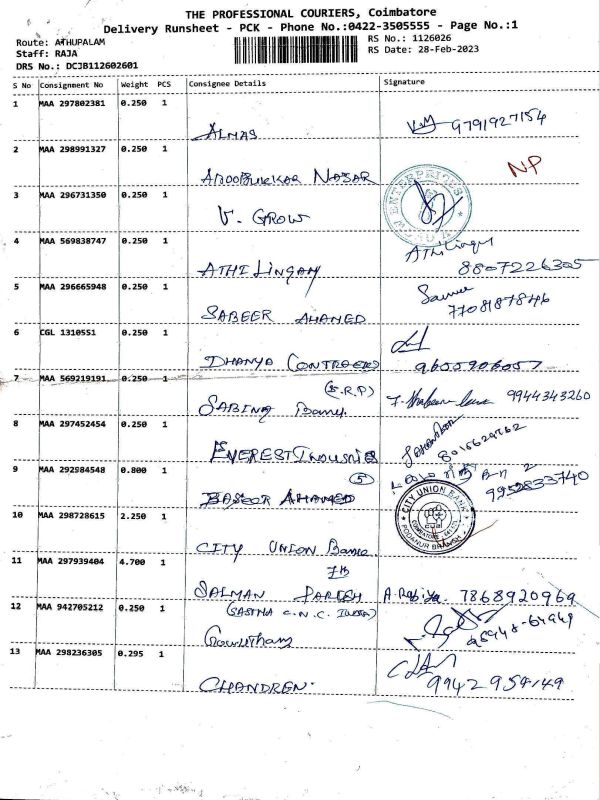 THE PROFESSIONAL COURIERS, Coimbatore
Delivery Runsheet - PCK - Phone No.:0422-3505555 - Page No.:1
Route: ATHUPALAM
Staff: RAJA
DRS No.: DCJB112602601
RS No.: 1126026
RS Date: 28-Feb-2023
S No Consignment No Weight PCS Consignee Details Signature
1 MAA 297802381 0.250 1
ALMAS 9791927154
2 MAA 298991327 0.250 1
NP
ABOOBUKKAR NASAR
3 MAA 296731350 0.250 1
V. GROW
ENTERPRISES
4 MAA 569838747 0.250 1
Athilingam
ATHILINGAM 8807226305
5 MAA 296665948 0.250 1
SABEER AHAMED 7708187846
6 CGL 1310551 0.250 1
DHANYA 9655906057
7 MAA 569219191 0.250 1
(F.R.P)
SABINA Banu 9944343260
8 MAA 297452454 0.250 1
EVEREST INDUSRIES
9 MAA 292984548 0.800 1
(5)
BASEER AHAMED 9952833740
10 MAA 298728615 2.250 1
CITY UNION BANK
COIMBATORE
PODANUR BRANCH
CITY UNION Bank
11 MAA 297939404 4.700 1
SALMAN PARESH A. Rabiya 7868920969
12 MAA 942705212 0.250 1
(SASTHA C.N.C. INDIA)
Gowutham
13 MAA 298236305 0.295 1
CHANDREN. 9942959149